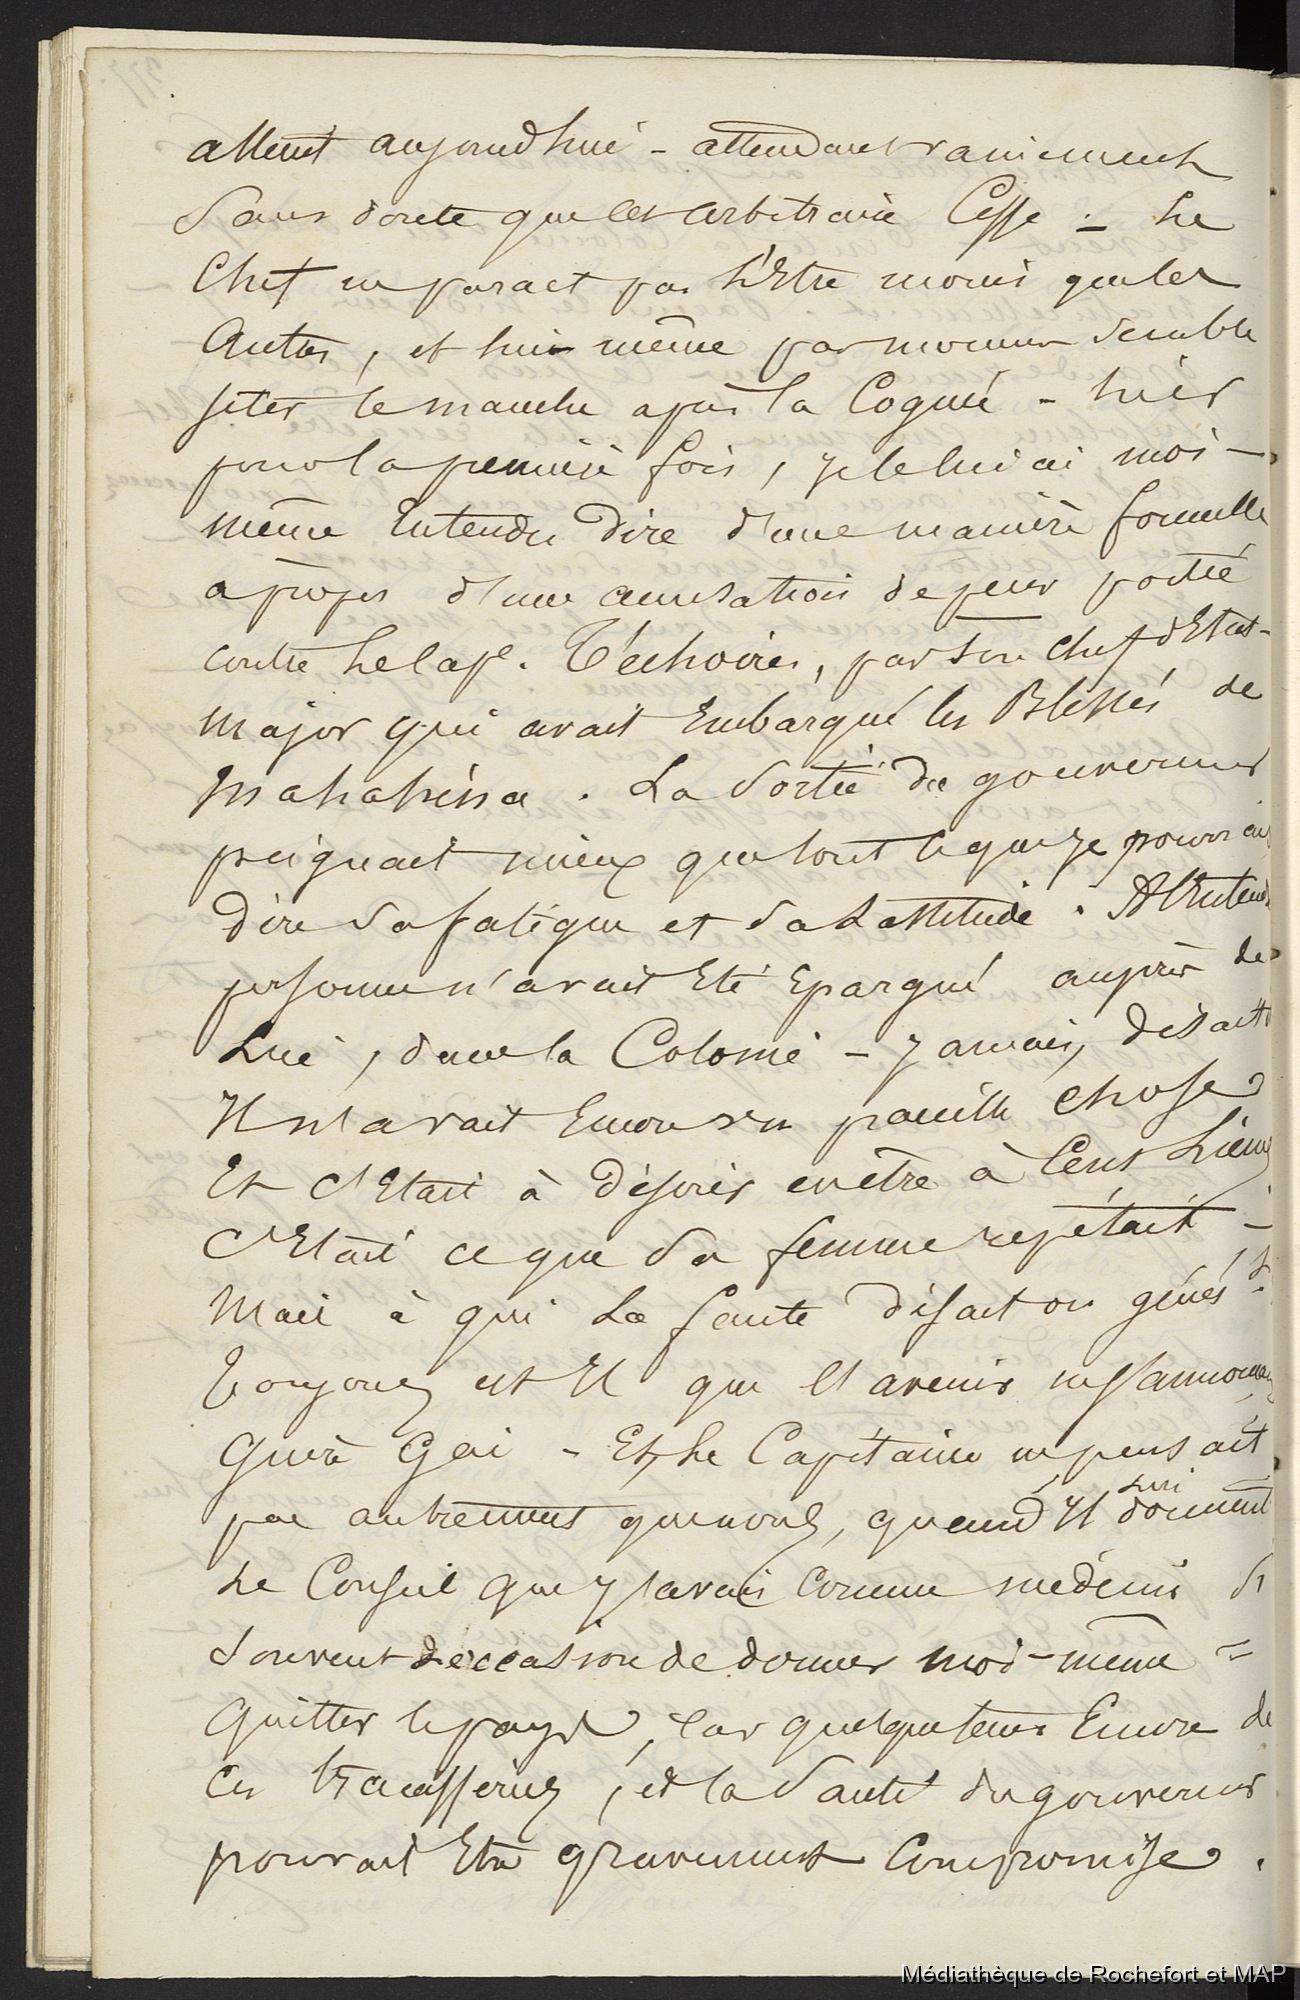 attend aujourd'hui - attendant vainement
Sans doute que l'arbitraire Cesse - Le
Chef ne parait pas l'Etre moins que les
Autres, et lui même par moment Semble
jeter le manche après la Cognée - hier
pour la première fois, je le lui ai moi-
même Entendu Dire d'une manière formelle
apropos d'une accusation de peur portée
contre le cape. Péchoires, par son chef d'Etat-
Major qui avait Embarqué les Blessés de
Mahahéna. La Sortie du gouverneur
peignait mieux que tout ce que je pourrais
Dire Sa fatigue et Sa Lassitude. A l'Entendre
personne n'avait Eté Epargné auprès de
Lui, dans la Colonie - jamais, disait
Il n'avait Encore vu pareille Chose
Et C'Etait à Désirer en être à Cent Lieues
C'Etait ce que Sa femme repétait -
Mais à qui La faute Disait on généralt.
Toujours est Il que l'avenir ne s'annonce
Guère Gai - Et le Capitaine ne pensait
pas autrement que nous, quand Il lui donnait
Le Conseil que j'avais Comme médecin Si
Souvent L'occasion de donner moi-même =
Quitter le pays, Car quelque tems Encore de
Ces tracasseries, et la Santé du gouverneur
pourrait Etre gravement Compromise.
Médiathèque de Rochefort et MAP